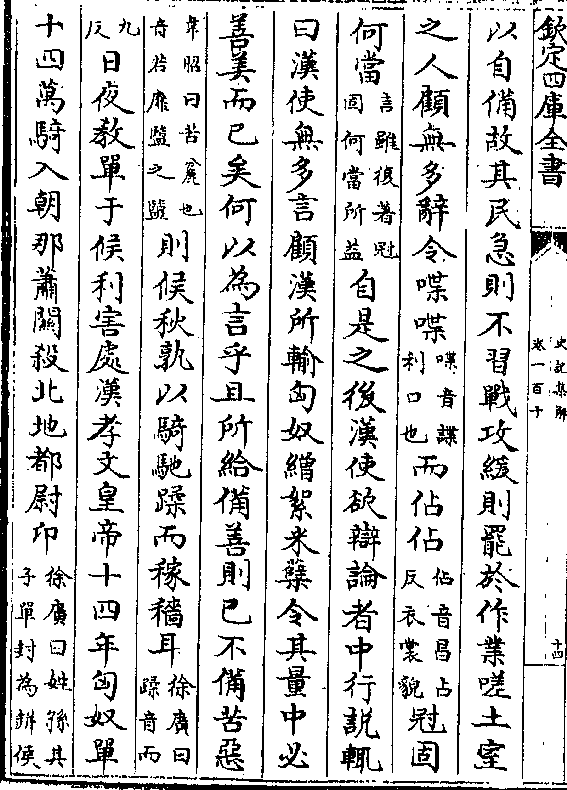 欽定四庫全書
史記集解
卷一百十
十四
以自備故其民急則不習戰攻緩則罷於作業嗟土室
之人顧無多辭令喋喋喋音諜利口也而佔佔佔音昌占反衣裳貌冠固
何當言雖復著冠固何當所益自是之後漢使欲辯論者中行說輒
曰漢使無多言顧漢所輸匈奴繒絮米糵令其量中必
善美而已矣何以為言乎且所給備善則已不備苦惡
韋昭曰苦麄也音若靡盬之盬則候秋孰以騎馳蹂而稼穡耳徐廣曰蹂音而
九反日夜教單于候利害處漢孝文皇帝十四年匈奴單
十四萬騎入朝那蕭關殺北地都尉卬徐廣曰姓孫其子單封為缾侯